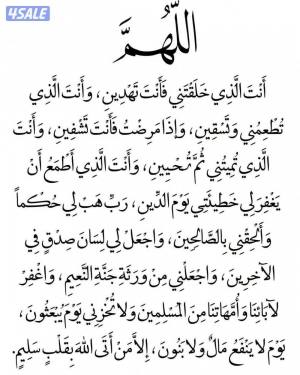 4SALE
اللَّهُمَّ
أَنتَ الَّذِي خَلَقْتَنِي فَأَنتَ تَهْدِينِ، وَأَنتَ الَّذِي
تُطْعِمُنِي وَتَسْقِينِ، وَإِذَا مَرِضْتُ فَأَنتَ تَشْفِينِ، وَأَنتَ
الَّذِي تُمِيتُنِي ثُمَّ تُحْيِينِ، وَأَنتَ الَّذِي أَطْمَعُ أَنْ
يَغْفِرَ لِي خَطِيئَتِي يَوْمَ الدِّينِ، رَبِّ هَبْ لِي حُكْماً
وَأَلْحِقْنِي بِالصَّالِحِينَ، وَاجْعَل لِي لِسَانَ صِدْقٍ فِي
الآخِرِينَ، وَاجْعَلْنِي مِنْ وَرَثَةِ جَنَّةِ النَّعِيمِ، وَاغْفِرْ
لآبَائِنَا وَأُمَّهَاتِنَا مِنَ المُسْلِمِينَ وَلَا تُخْزِنِي يَوْمَ يُبْعَثُونَ،
يَوْمَ لَا يَنْفَعُ مَالٌ وَلَا بَنُونَ، إِلَّا مَنْ أَتَى اللهَ بِقَلْبٍ سَلِيمٍ.